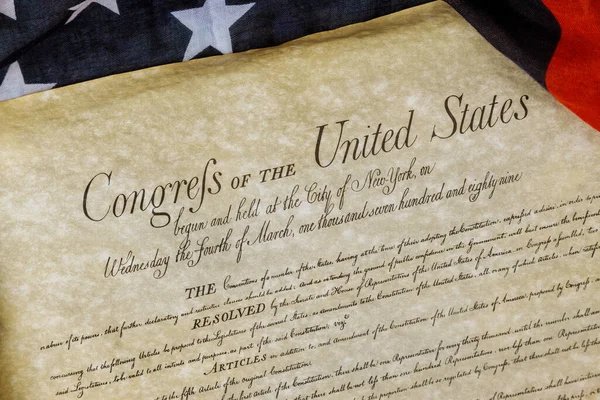 Congreſs OF THE United States
begun and held at the City of New-York, on
Wednesday the Fourth of March, one thousand seven hundred and eighty nine
THE Conventions of a number of the States, having at the time of their adopting the Constitution, expressed a desire, in order to
abuse of its powers, that further declaratory and restrictive clauses should be added: And as extending the ground of public confidence in the Government, will best ensure the
RESOLVED by the Senate and House of Representatives of the United States of America, in Congress assembled, two
concurring that the following Articles be proposed to the Legislatures of the several States, as amendments to the Constitution of the United States, all, or any of which Articles, when
said Legislatures, to be valid to all intents and purposes, as part of the said Constitution; viz.
ARTICLES in addition to, and Amendment of the Constitution of the United States of America, proposed by Congress,
to the fifth Article of the original Constitution.
first article of the Constitution, there shall be one Representative for every thirty thousand, until the number shall
shall not be less than one hundred Representatives, nor less than one Representative